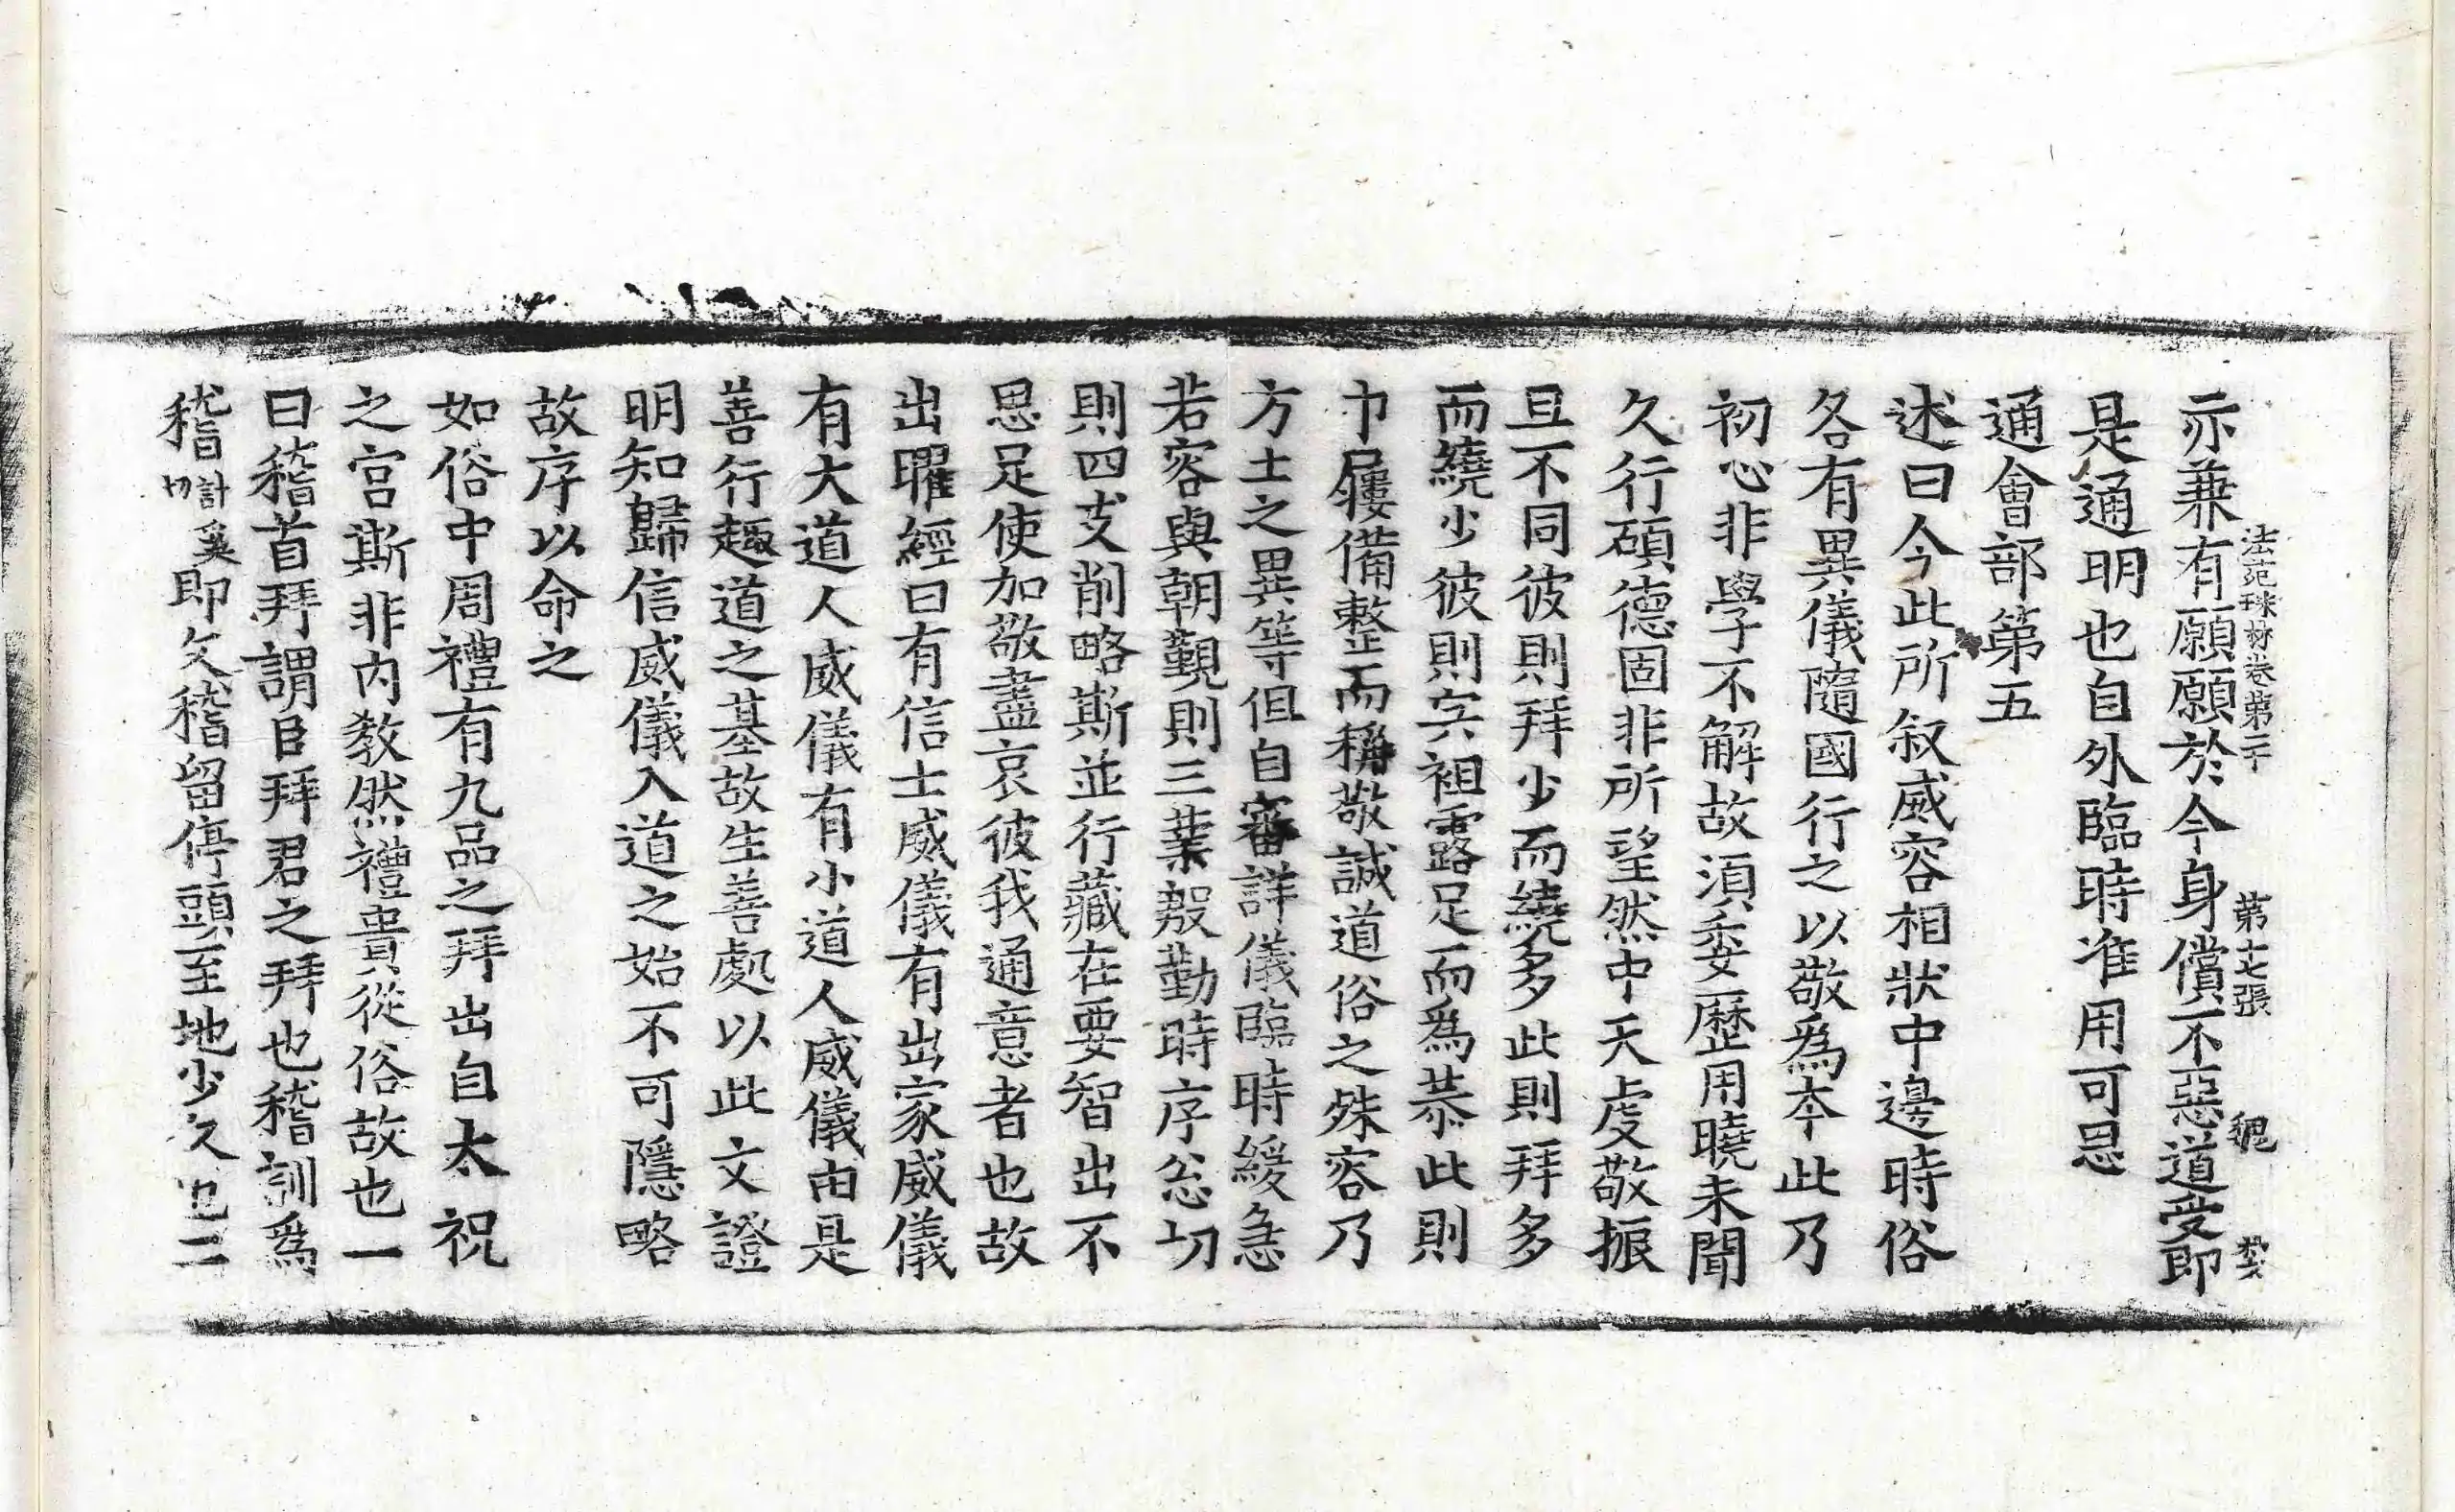 法苑珠林卷第二十 第十七張 槐 㲉
亦兼有願願於今身償不惡道受即
是通明也自外臨時准用可思
通會部第五
述曰今此所叙威容相狀中邊時俗
各有異儀隨國行之以敬爲夲此乃
初心非學不解故須委歷用曉未聞
久行碩德固非所望然中天虔敬振
旦不同彼則拜少而繞多此則拜多
而繞少彼則肉袒露足而爲恭此則
巾屨備整而稱敬誠道俗之殊容乃
方土之異等但自審詳儀臨時緩急
若容與朝覲則三業慇勤時序忩切
則四支削略斯並行藏在要智出不
思足使加敬盡哀彼我通意者也故
出曜經曰有信士威儀有出家威儀
有大道人威儀有小道人威儀由是
善行趣道之基故生善處以此文證
明知歸信威儀入道之始不可隱略
故序以命之
如俗中周禮有九品之拜出自太祝
之官斯非内教然禮貴從俗故也一
曰稽首拜謂臣拜君之拜也稽訓爲
稽計奚切即久稽留停頭至地少久也二